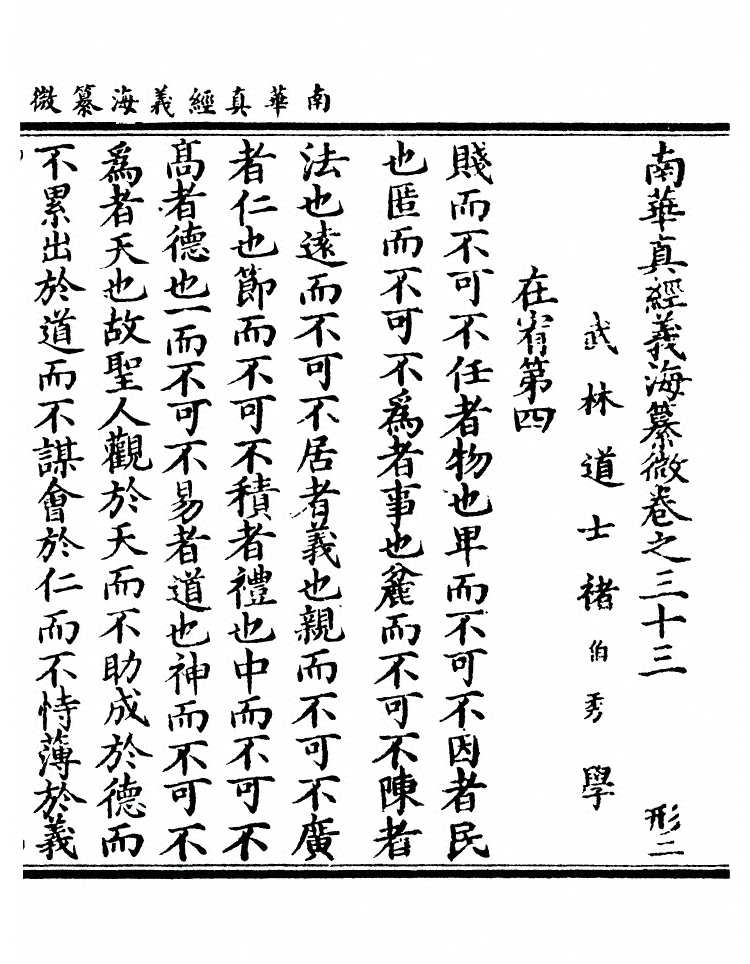 南華真經義海纂微
南華真經義海纂微卷之三十三 形二
武林道士褚伯秀學
在宥第四
賤而不可不任者物也卑而不可不因者民
也匿而不可不爲者事也麄而不可不陳者
法也遠而不可不居者義也親而不可不廣
者仁也節而不可不積者禮也中而不可不
高者德也一而不可不易者道也神而不可不
爲者天也故聖人觀於天而不助成於德而
不累出於道而不謀會於仁而不恃薄於義